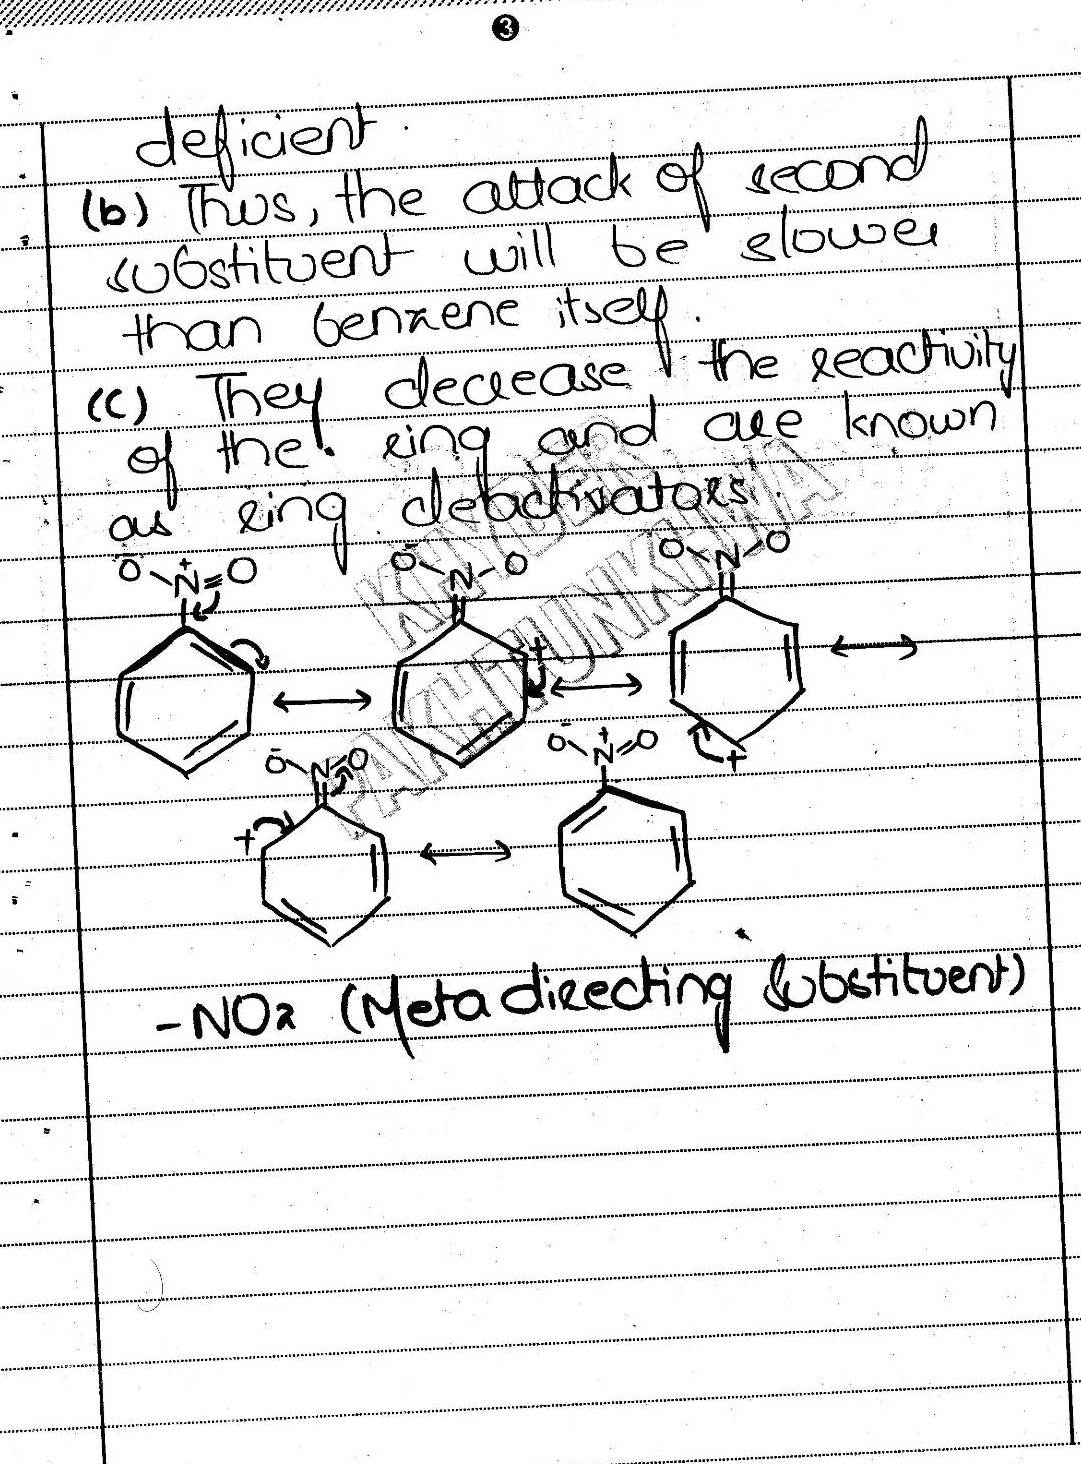 3
deficient.
(b) Thus, the attack of second
substituent will be slower
than benzene itself.
(c) They decrease the reactivity
of the ring and are known
as ring deactivators.
KHYBER
PAKHTUNKHWA
O⁻ N⁺ O
O⁻ N O +
O⁻ N O +
O⁻ N O +
O⁻ N⁺ O
-NO2 (Meta directing Substituent)